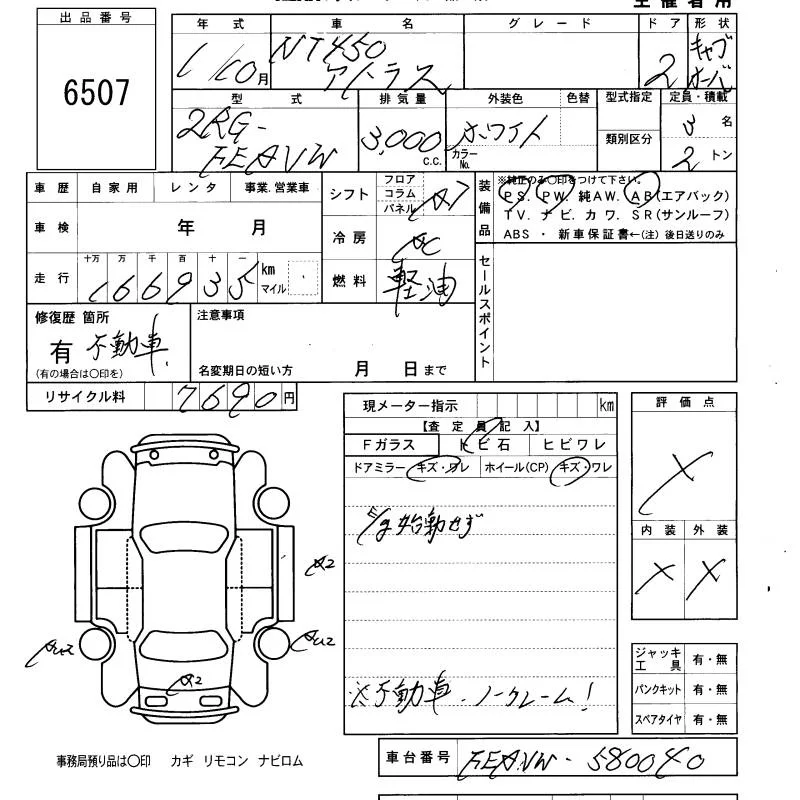 主催者用
出品番号
6507
年式 車名 グレード ドア 形状
1/10月 NT450 アトラス 2 キャブオーバ
型式 排気量 外装色 色替 型式指定 定員・積載
2RG-FEAVW 3,000c.c. ホワイト カラーNo. 類別区分 3名 2トン
車歴 自家用 レンタ 事業.営業車
車検 年 月
走行 十万 万 千 百 十 一 km マイル
166935
シフト フロア コラム パネル
冷房 AC
燃料 軽油
装備品 ※純正のみ〇印をつけて下さい。
PS. PW. 純AW. AB(エアバック)
TV. ナビ. カワ. SR(サンルーフ)
ABS ・ 新車保証書←(注) 後日送りのみ
セールスポイント
修復歴 箇所
有 不動車
(有の場合は〇印を)
注意事項
名変期日の短い方 月 日まで
リサイクル料 7690円
現メーター指示 km
【査定員記入】
Fガラス トビ石 ヒビワレ
ドアミラー キズ・ワレ ホイール(CP) キズ・ワレ
E/g始動せず
※不動車.ノークレーム!
評価点
X
内装 外装
X X
A2
AU2
A2
ジャッキ工具 有・無
パンクキット 有・無
スペアタイヤ 有・無
事務局預り品は〇印 カギ リモコン ナビロム
車台番号 FEAVW-580040